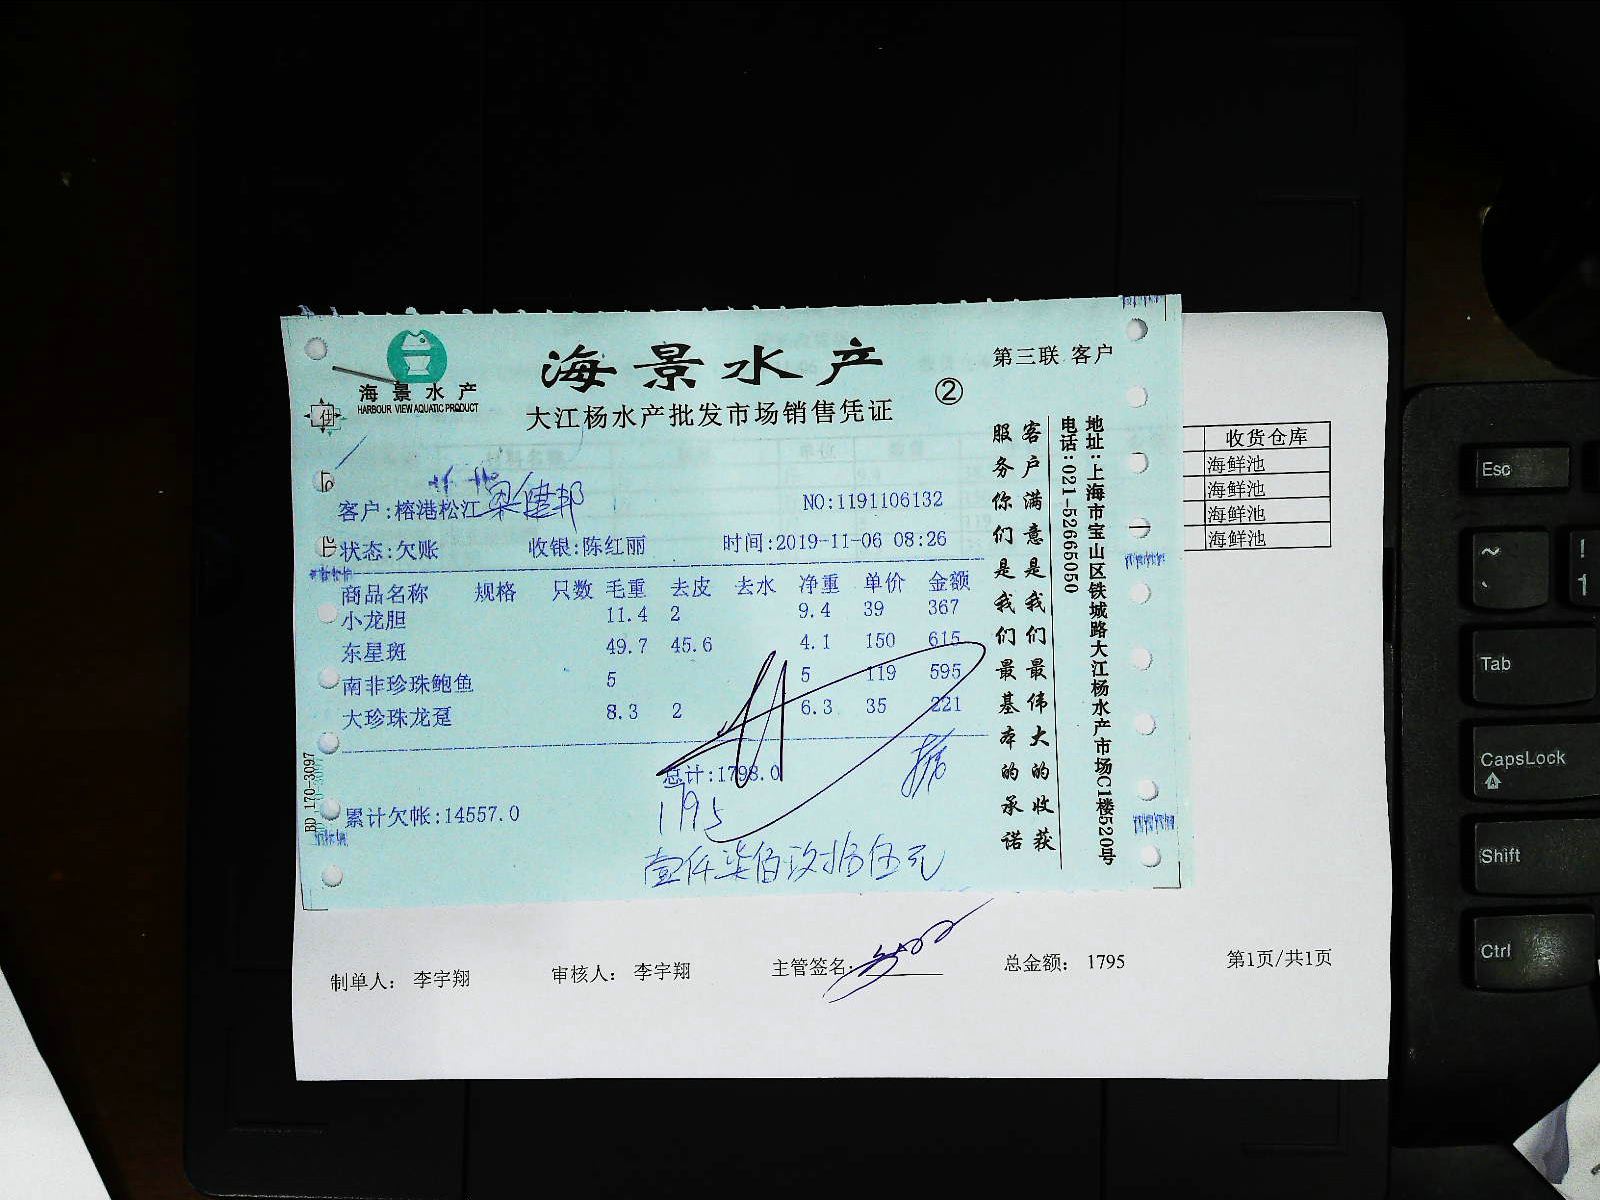 海景水产
HARBOUR VIEW AQUATIC PRODUCT
海景水产
大江杨水产批发市场销售凭证
②
第三联 客户
客户:榕港松江 梁健邦
NO:1191106132
状态:欠账 收银:陈红丽 时间:2019-11-06 08:26
商品名称 规格 只数 毛重 去皮 去水 净重 单价 金额
小龙胆 11.4 2 9.4 39 367
东星斑 49.7 45.6 4.1 150 615
南非珍珠鲍鱼 5 5 119 595
大珍珠龙趸 8.3 2 6.3 35 221
总计:1798.0
1795
累计欠帐:14557.0
壹仟柒佰玖拾伍元
客户满意是我们最伟大的收获
服务你们是我们最基本的承诺
地址:上海市宝山区铁城路大江杨水产市场C1楼520号
电话:021-52665050
BD 170-3097
收货仓库
海鲜池
海鲜池
海鲜池
海鲜池
制单人: 李宇翔 审核人: 李宇翔 主管签名: 总金额: 1795 第1页/共1页
Esc
~
`
!
1
Tab
CapsLock
Shift
Ctrl